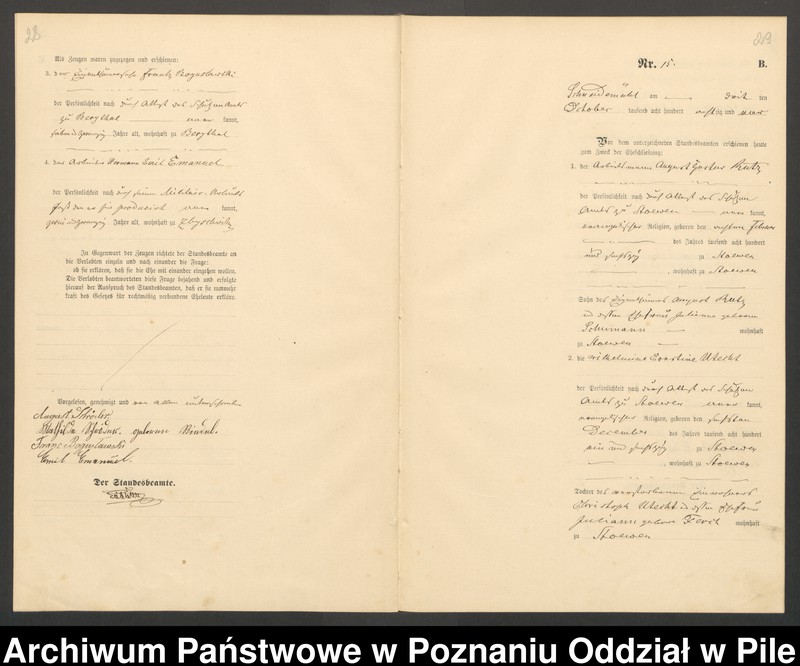 28
Als Zeugen waren zugezogen und erschienen:
3. der Eigenthümersohn Frantz Boguslawski
der Persönlichkeit nach durch Attest des Schulzen Amts
zu Bergthal kannt,
Jahre alt, wohnhaft zu Bergthal
4. der Arbeiter Hermann Emil Emanuel
der Persönlichkeit nach durch seinen Militair-
kannt,
Jahre alt, wohnhaft zu
In Gegenwart der Zeugen richtete der Standesbeamte an
die Verlobten einzeln und nach einander die Frage:
ob sie erklären, daß sie die Ehe mit einander eingehen wollen.
Die Verlobten beantworteten diese Frage bejahend und erfolgte
hierauf der Ausspruch des Standesbeamten, daß er sie nunmehr
kraft des Gesetzes für rechtmäßig verbundene Eheleute erkläre.
Vorgelesen, genehmigt und von allen unterschrieben
August Ströder.
geborene
Franz Boguslawski
Emil Emanuel.
Der Standesbeamte.
219
Nr. 15. B.
Schneidemühl am drei ten
October tausend acht hundert achtzig und vier
Vor dem unterzeichneten Standesbeamten erschienen heute
zum Zweck der Eheschließung:
1. der Arbeitsmann August Gustav Rutz
der Persönlichkeit nach durch Attest des Schulzen
Amts zu Stoewen kannt,
evangelischer Religion, geboren den achten Februar
des Jahres tausend acht hundert
und fünfzig zu Stoewen
, wohnhaft zu Stoewen
Sohn des Eigenthümers August Rutz
und dessen Ehefrau Julianne geborene
Schumann wohnhaft
zu Stoewen
2. die Wilhelmine Ernstine Utecht
der Persönlichkeit nach durch Attest des Schulzen
Amts zu Stoewen kannt,
evangelischer Religion, geboren den fünften
December des Jahres tausend acht hundert
ein und fünfzig zu Stoewen
, wohnhaft zu Stoewen
Tochter des verstorbenen Einwohners
Christoph Utecht und dessen Ehefrau
Juliann geborene wohnhaft
zu Stoewen
Archiwum Państwowe w Poznaniu Oddział w Pile